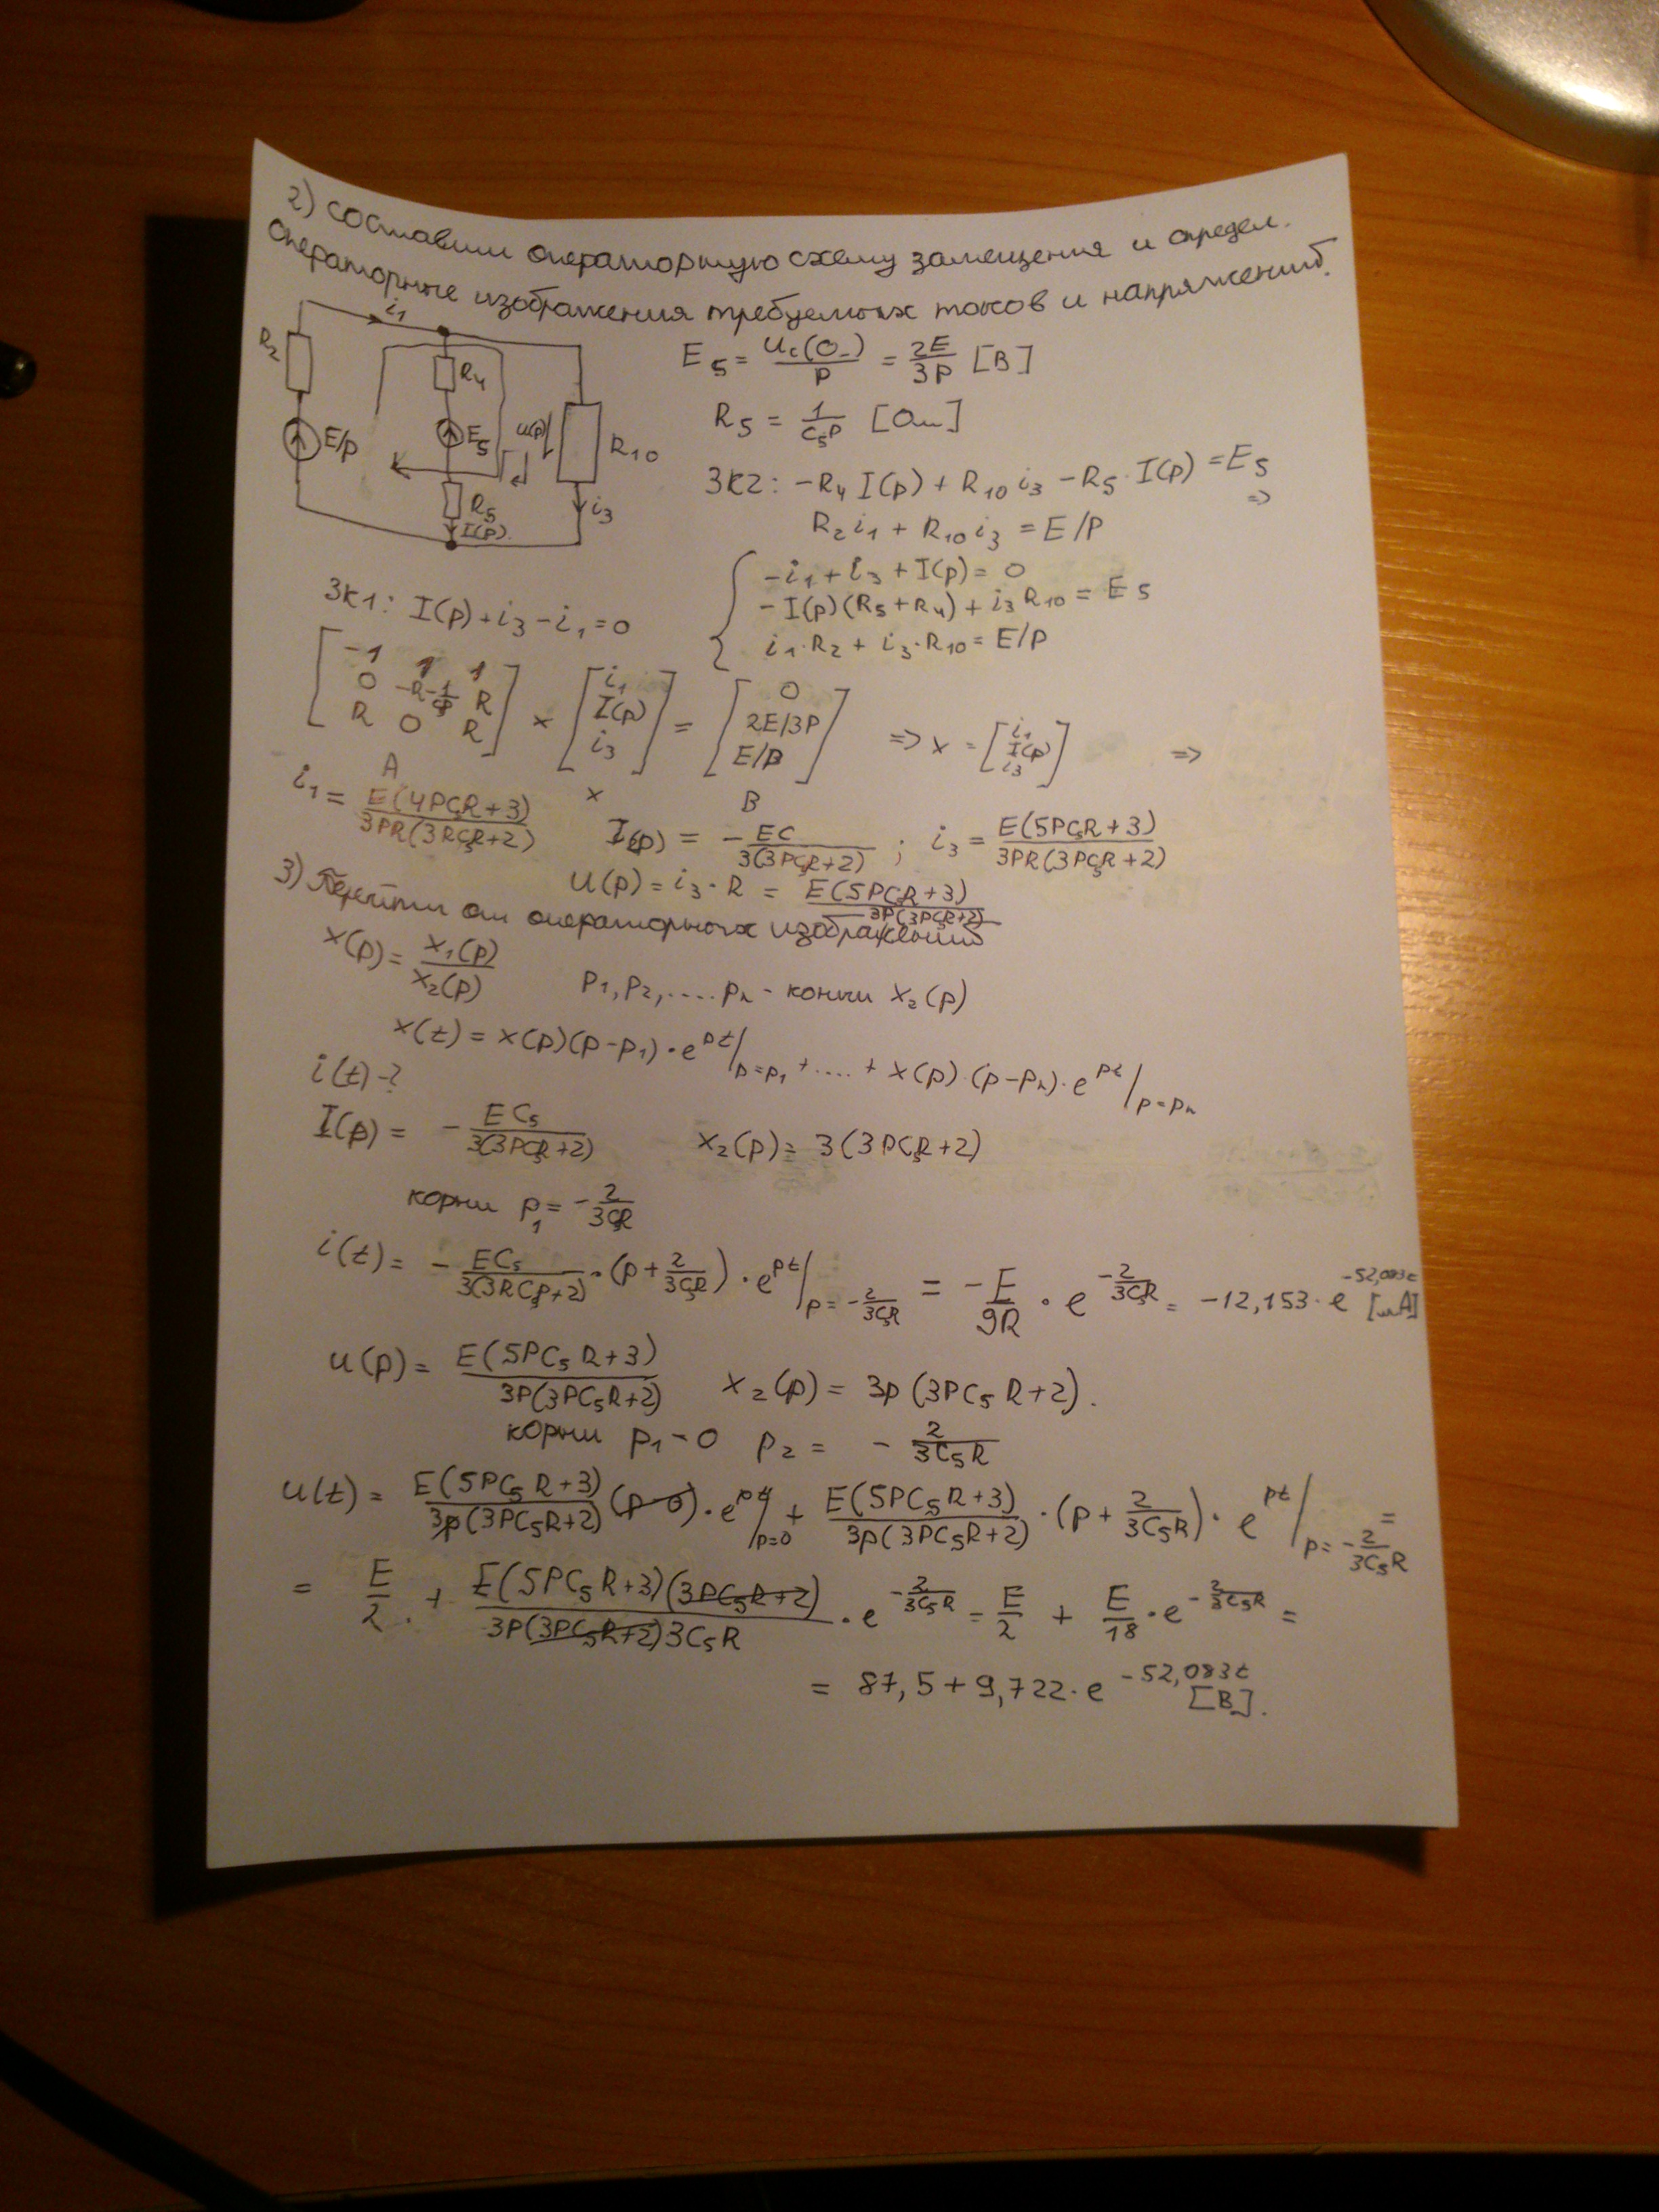 2) составим операторную схему замещения и определ.
операторные изображения требуемых токов и напряжений.
i₁
R₂
R₄
E/p
E₅
u(p)
R₁₀
R₅
I(p)
i₃
E₅ = u_c(0₋)/p = 2E/3p [В]
R₅ = 1/(C₅p) [Ом]
ЗК2: -R₄ I(p) + R₁₀ i₃ - R₅ · I(p) = E₅ =>
R₂ i₁ + R₁₀ i₃ = E/p
ЗК1: I(p) + i₃ - i₁ = 0
{ -i₁ + i₃ + I(p) = 0
-I(p)(R₅ + R₄) + i₃ R₁₀ = E₅
i₁ · R₂ + i₃ · R₁₀ = E/p
[-1 1 1; 0 -R-1/Cp R; R 0 R] × [i₁; I(p); i₃] = [0; 2E/3p; E/p] => x = [i₁; I(p); i₃] =>
A x B
i₁ = E(4PC₅R+3)/3PR(3RC₅R+2) I(p) = - EC/3(3PC₅R+2) ; i₃ = E(5PC₅R+3)/3PR(3PC₅R+2)
u(p) = i₃ · R = E(5PC₅R+3)/3P(3PC₅R+2)
3) Перейти от операторных изображений
x(p) = x₁(p)/x₂(p) p₁, p₂, .... pₙ - корни x₂(p)
x(t) = x(p)(p-p₁) · e^{pt}/_{p=p₁} + .... + x(p) · (p-pₙ) · e^{pt}/_{p=pₙ}
i(t) - ?
I(p) = - EC₅/3(3PC₅R+2) x₂(p) = 3(3PC₅R+2)
корни p₁ = - 2/3C₅R
i(t) = - EC₅/3(3RC₅p+2) · (p + 2/3C₅R) · e^{pt}/_{p = -2/3C₅R} = - E/9R · e^{-2/3C₅R} = -12,153 · e^{-52,083t} [мА]
u(p) = E(5PC₅R+3)/3P(3PC₅R+2) x₂(p) = 3p(3PC₅R+2).
корни p₁ - 0 p₂ = - 2/3C₅R
u(t) = E(5PC₅R+3)/3p(3PC₅R+2) (p-0) · e^{pt}/_{p=0} + E(5PC₅R+3)/3p(3PC₅R+2) · (p + 2/3C₅R) · e^{pt}/_{p = -2/3C₅R} =
= E/2 + E(5PC₅R+3)(3PC₅R+2)/3P(3PC₅R+2)3C₅R · e^{-2/3C₅R} = E/2 + E/18 · e^{-2/3C₅R} =
= 87,5 + 9,722 · e^{-52,083t} [В].